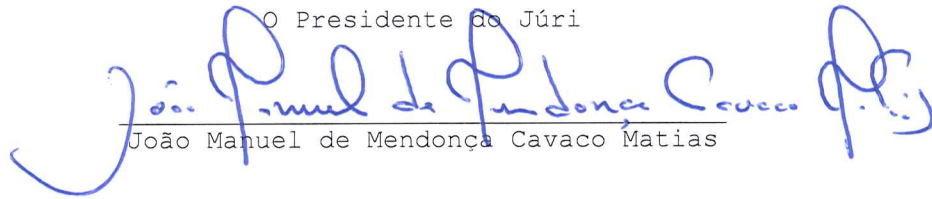 O Presidente do Júri
João Manuel de Mendonça Cavaco Matias
João Manuel de Mendonça Cavaco Matias